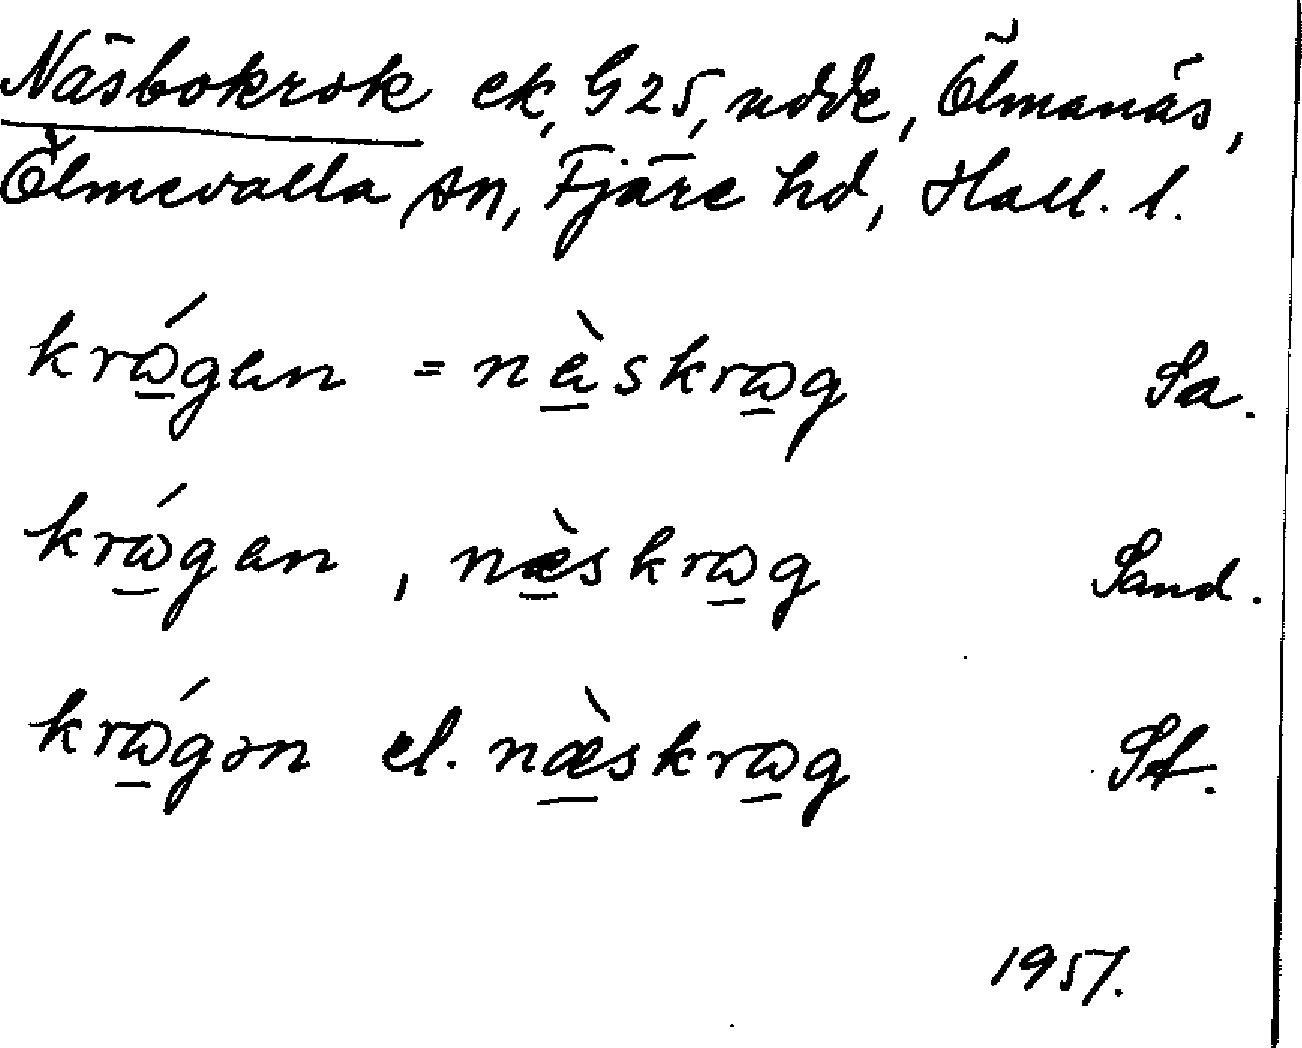 Näsbokrok ek, G25, udde, Ölmanäs,
Ölmevalla sn, Fjäre hd, Hall. l.
krǻgan = nàskråg Sa.
krågan, næ̀skråg Sand.
krågən el. næ̀skråg St.
1951.